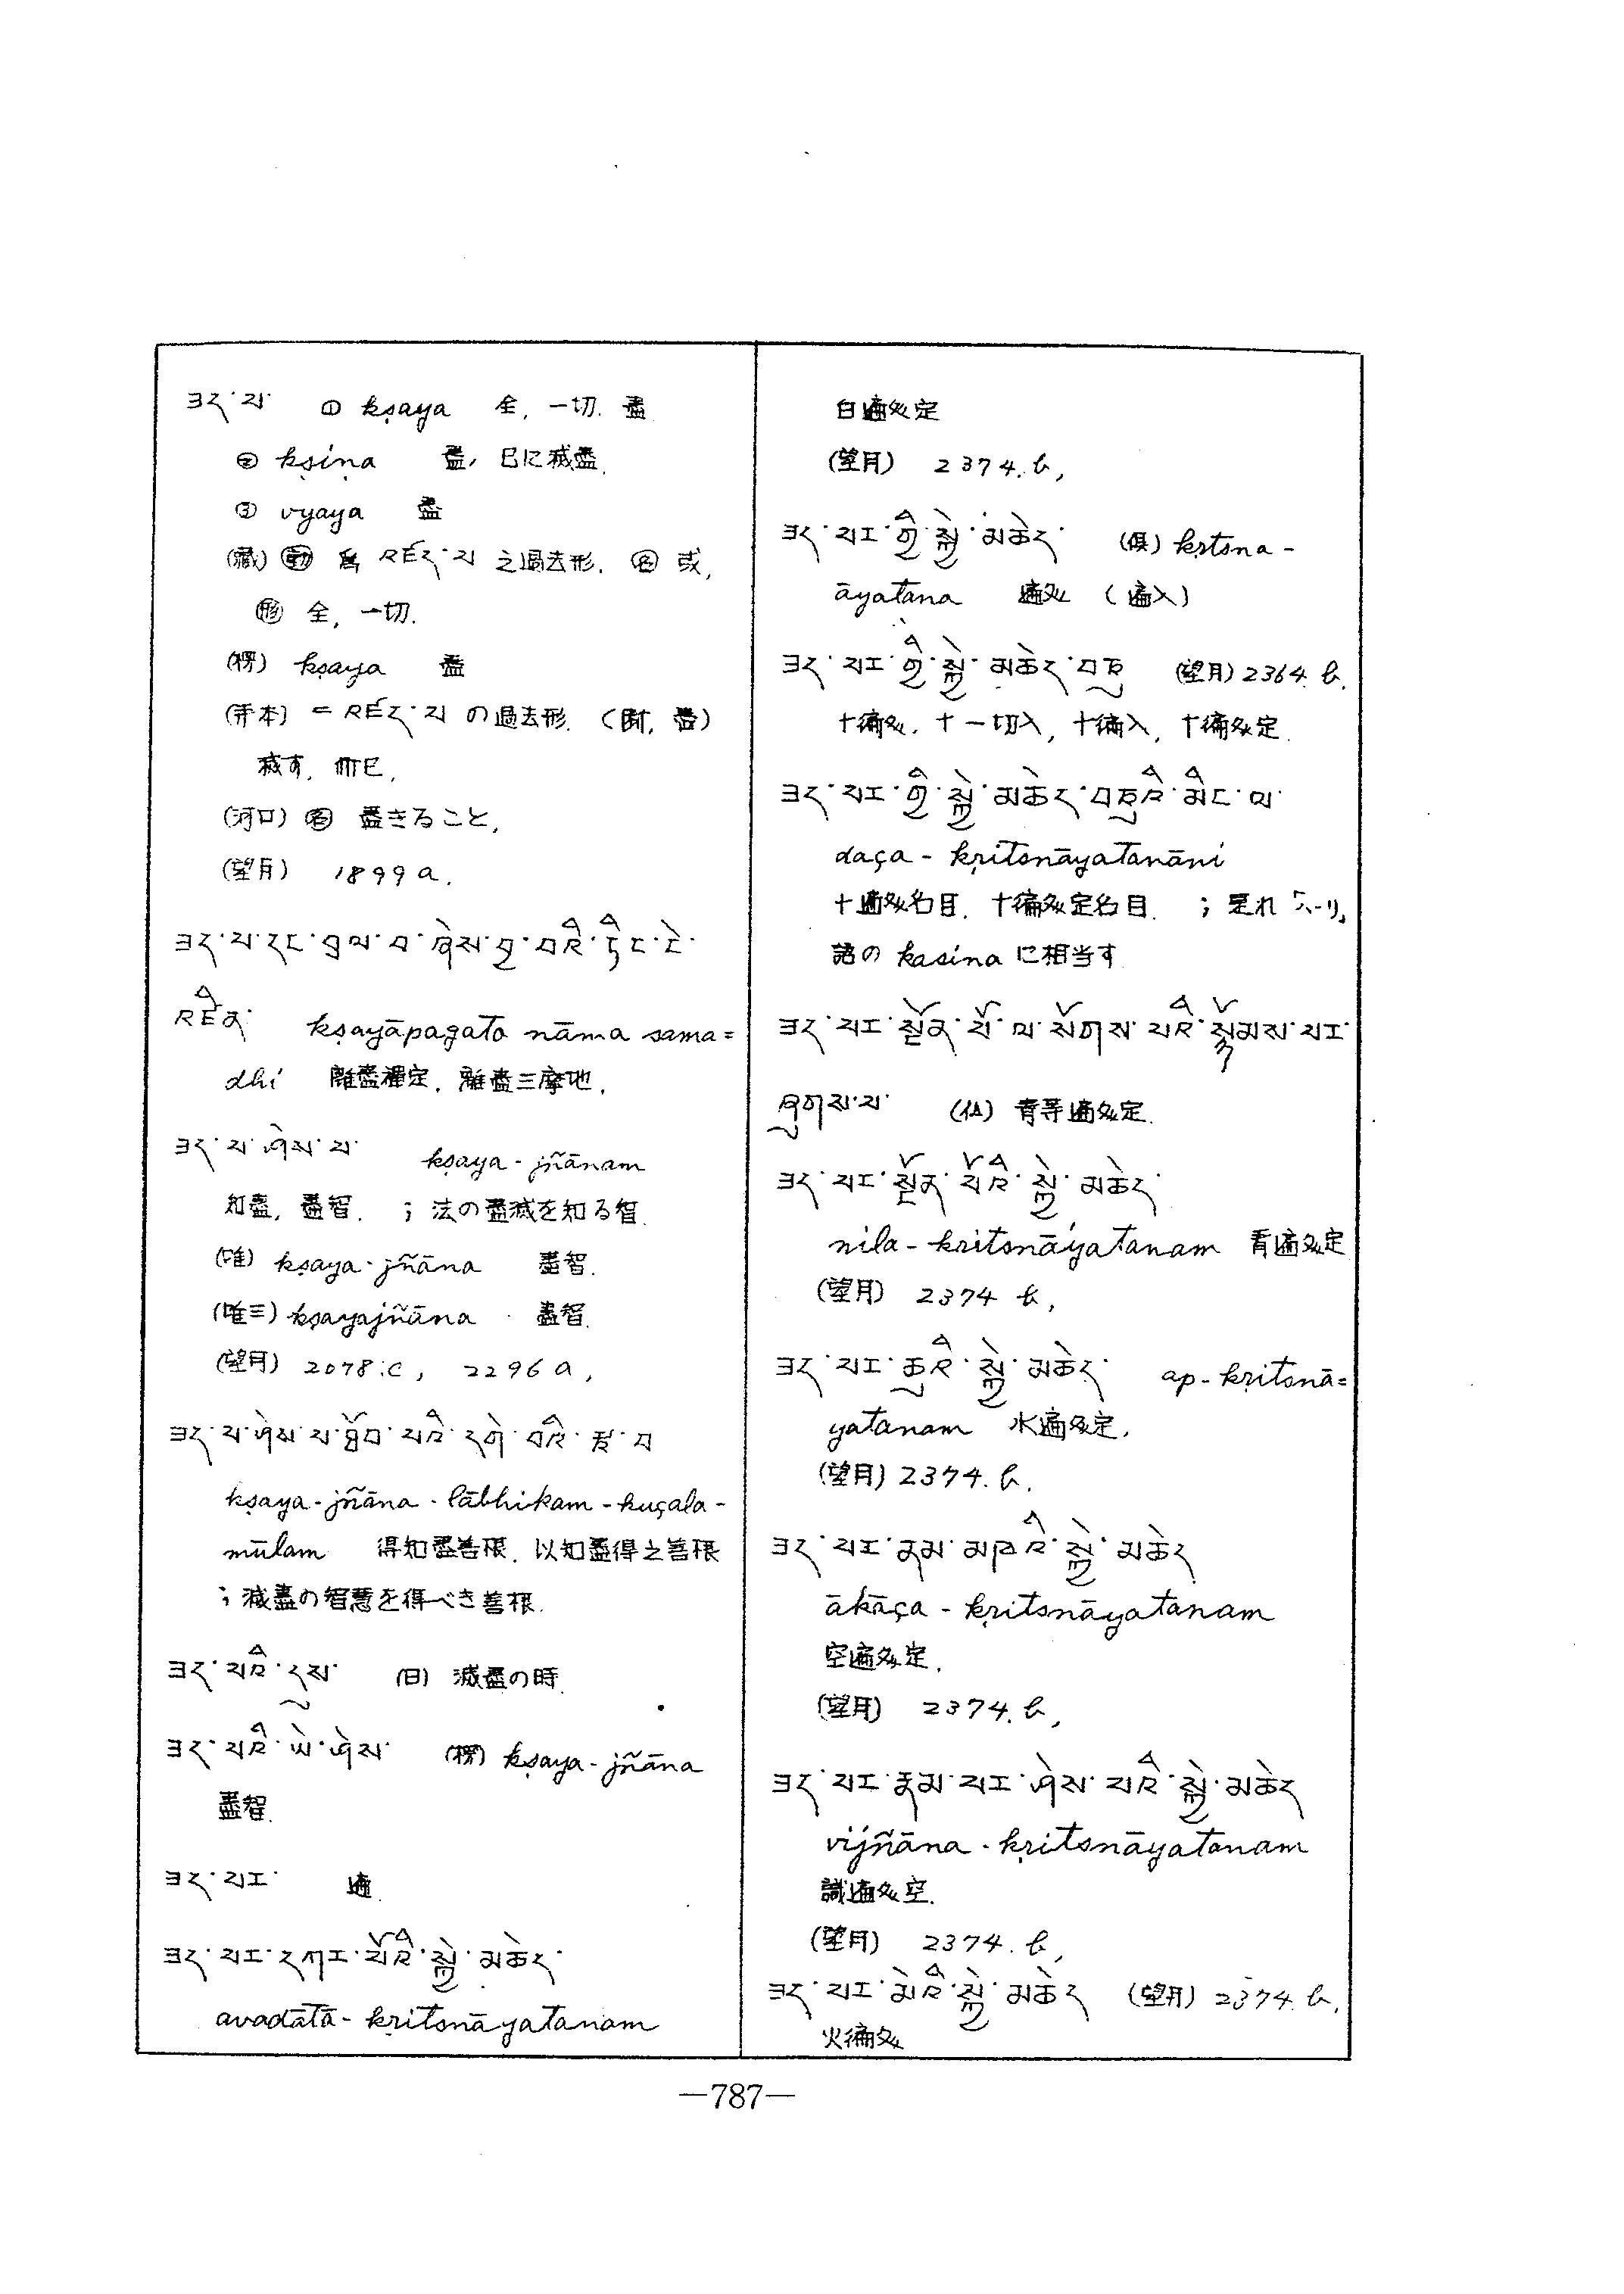 ཟད་པ་ ① kṣaya 全, 一切. 盡
② kṣiṇa 盡, 已に滅盡.
③ vyaya 盡
(藏) ㊞動 爲 འཛད་པ 之過去形. 名 或,
形 全, 一切.
(楞) kṣaya 盡
(芋本) = འཛད་པ の過去形. (断, 盡)
滅す. 而已,
(河口) 名 盡きること,
(望月) 1899a.
ཟད་པ་དང་བྲལ་བ་ཞེས་བྱ་བའི་ཏིང་ངེ་
འཛིན་ kṣayāpagato nāma sama=
dhi 離盡禪定. 離盡三摩地,
ཟད་པ་ཤེས་པ་ kṣaya-jñānam
知盡, 盡智. ; 法の盡滅を知る智.
(唯) kṣaya-jñāna 盡智.
(唯三) kṣayajñāna 盡智.
(望月) 2078.c, 2296a,
ཟད་པ་ཤེས་པ་ཐོབ་པའི་དགེ་བའི་རྩ་བ
kṣaya-jñāna-lābhikam-kuçala-
mūlam 得知盡善根. 以知盡得之善根
; 滅盡の智慧を得べき善根.
ཟད་པའི་དུས་ (日) 滅盡の時.
ཟད་པའི་ཡེ་ཤེས་ (楞) kṣaya-jñāna
盡智.
ཟད་པར་ 遍.
ཟད་པར་དཀར་པོའི་སྐྱེ་མཆེད་
avadātā-kṛitsnāyatanam
白遍処定
(望月) 2374.b,
ཟད་པར་གྱི་སྐྱེ་མཆེད་ (倶) kṛtsna-
āyatana 遍処 (遍入)
ཟད་པར་གྱི་སྐྱེ་མཆེད་བཅུ (望月) 2364.b.
十徧処. 十一切入, 十徧入, 十徧処定.
ཟད་པར་གྱི་སྐྱེ་མཆེད་བཅུའི་མིང་ལ་
daça-kṛitsnāyatanāni
十遍処名目. 十徧処定名目. ; 是れ「パーリ」
語の kasina に相当す
ཟད་པར་སྔོན་པོ་ལ་སོགས་པའི་སྙོམས་པར་
ཞུགས་པ་ (仏) 青等遍処定.
ཟད་པར་སྔོན་པོའི་སྐྱེ་མཆེད་
nila-kritsnāyatanam 青遍処定
(望月) 2374 b,
ཟད་པར་ཆུའི་སྐྱེ་མཆེད་ ap-kṛitsnā=
yatanam 水遍処定,
(望月) 2374.b.
ཟད་པར་ནམ་མཁའི་སྐྱེ་མཆེད
ākāça-kṛitsnāyatanam
空遍処定.
(望月) 2374.b,
ཟད་པར་རྣམ་པར་ཤེས་པའི་སྐྱེ་མཆེད
vijñāna-kṛitsnāyatanam
識遍処空.
(望月) 2374.b,
ཟད་པར་མེའི་སྐྱེ་མཆེད (望月) 2374.b,
火徧処
—787—